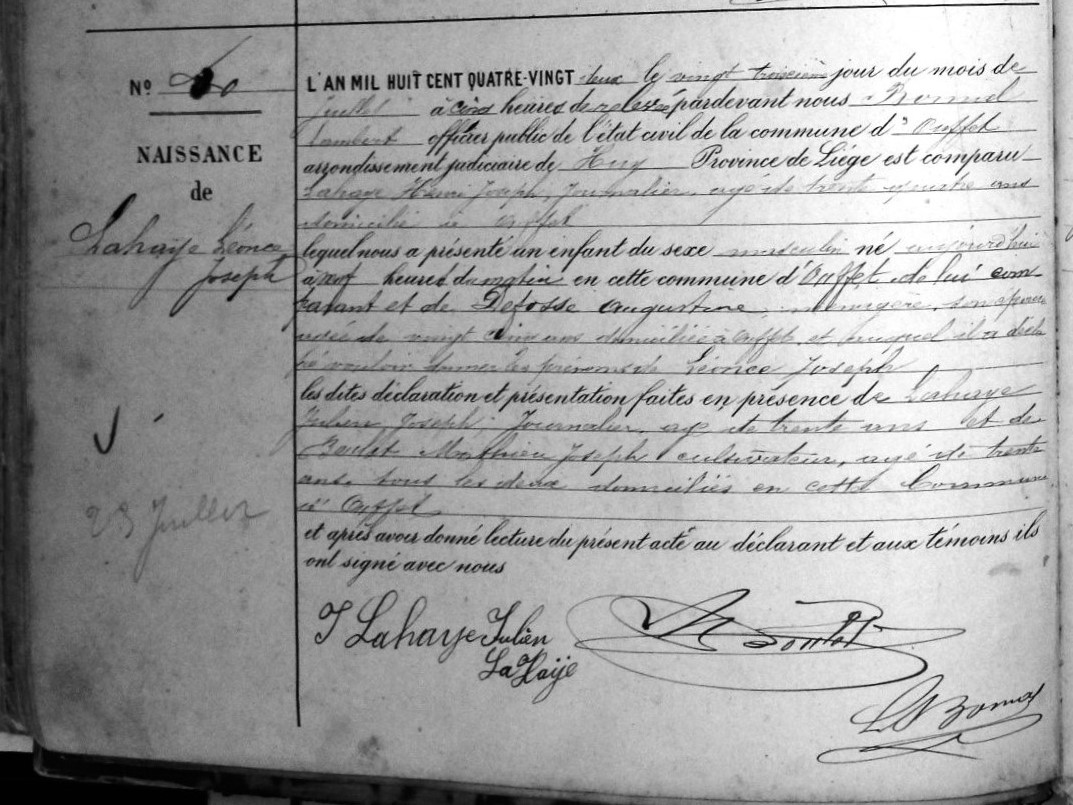 N.º
NAISSANCE
de
Lahaye Léonce
Joseph
23 Juillet
L'AN MIL HUIT CENT QUATRE-VINGT deux le vingt troisième jour du mois de
Juillet à cinq heures de relevé pardevant nous
Lambert officier public de l'état civil de la commune d' Ouffet
arrondissement judiciaire de Huy Province de Liége est comparu
Lahaye Henri Joseph, Journalier, agé de trente quatre ans
domicilié à Ouffet
lequel nous a présenté un enfant du sexe masculin né aujourd'hui
à heures du matin en cette commune d'Ouffet de lui com
parant et de Defosse Augustine, ménagère, son épouse
agée de vingt cinq ans domiciliée à Ouffet, et auquel il a décla
ré vouloir donner les prénoms de Léonce Joseph
les dites déclaration et présentation faites en présence de Lahaye
Julien Joseph, Journalier, agé de trente ans et de
Boulet Mathieu Joseph cultivateur, agé de trente
ans, tous les deux domiciliés en cette Commune
d' Ouffet
et après avoir donné lecture du présent acte au déclarant et aux témoins ils
ont signé avec nous
J Lahaye Julien
La Haÿe